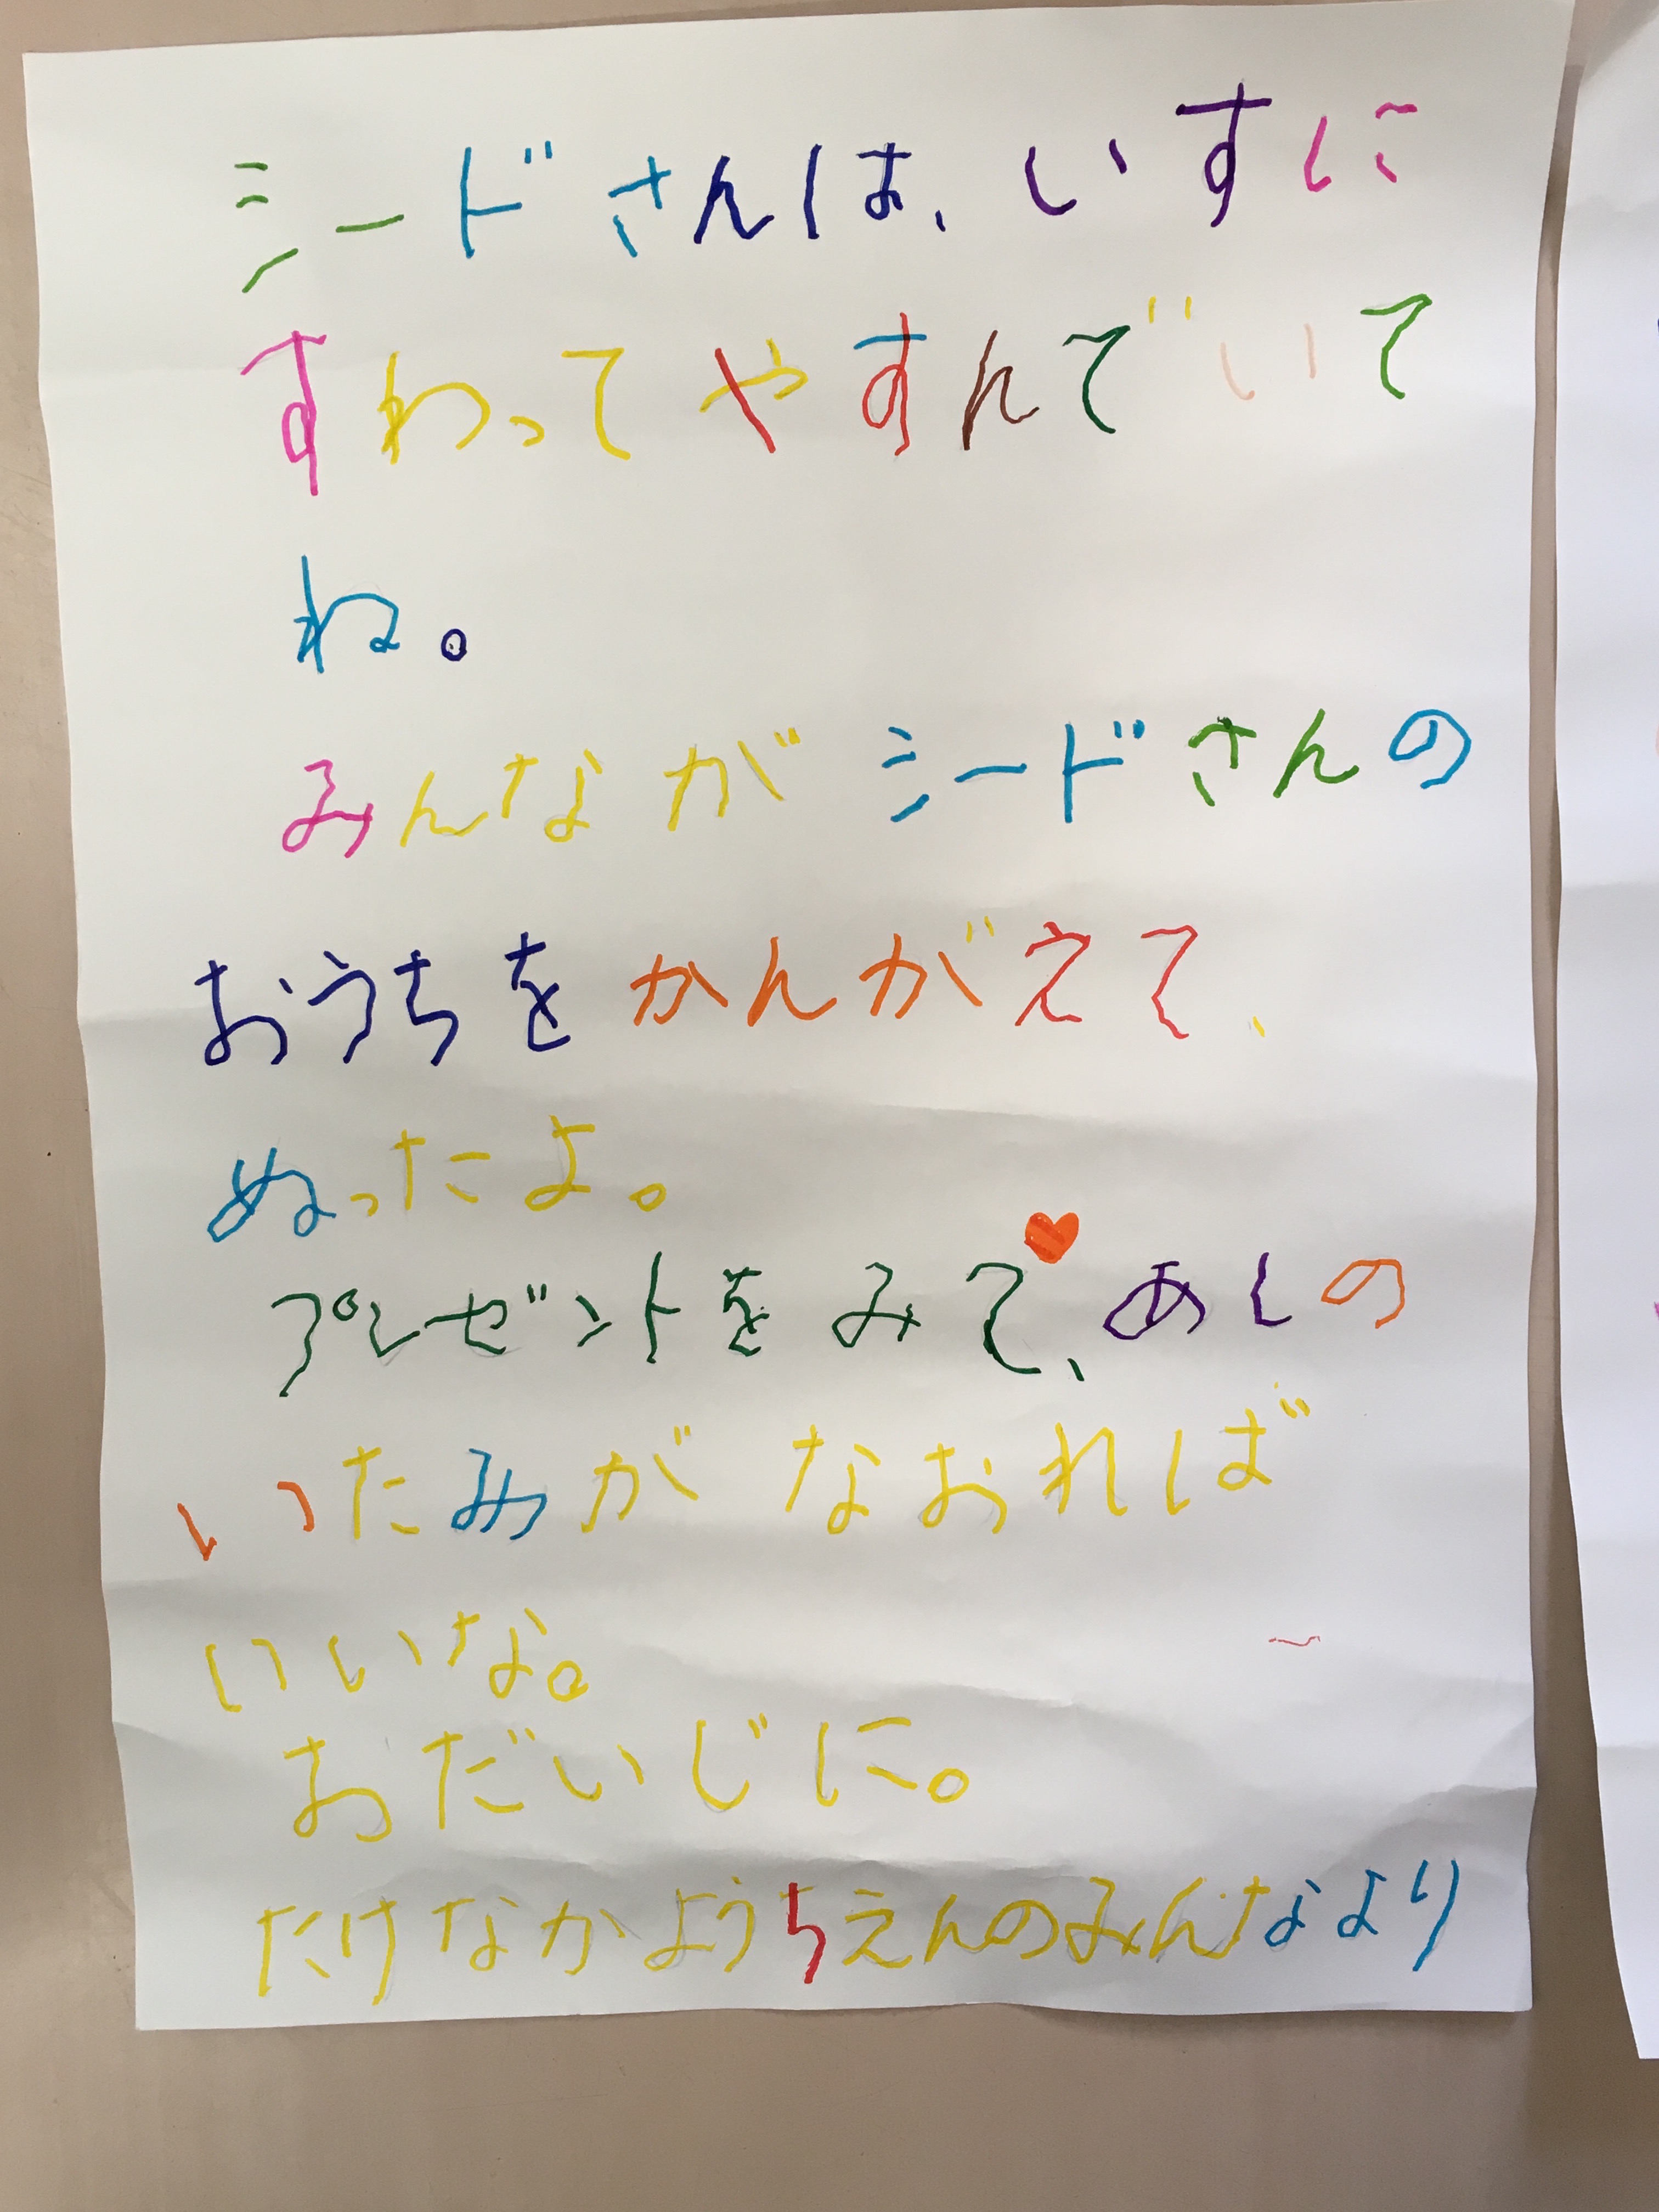 シードさんは、いすに
すわってやすんでいて
ね。
みんながシードさんの
おうちをかんがえて、
ぬったよ。
プレゼントをみて、あしの
いたみがなおれば
いいな。
おだいじに。
たけなかようちえんのみんなより